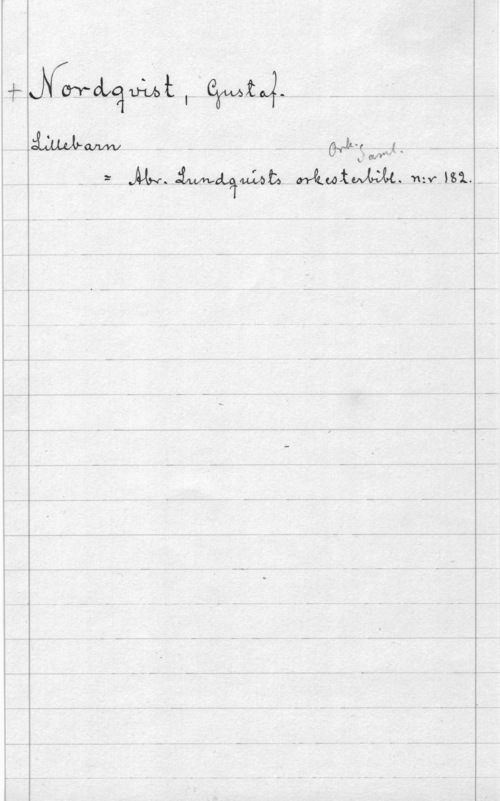 + Nordqvist, Gustaf.
Lillebarn
Ork. Saml.
= Abr. Lundquists orkesterbibl. n:r 182.